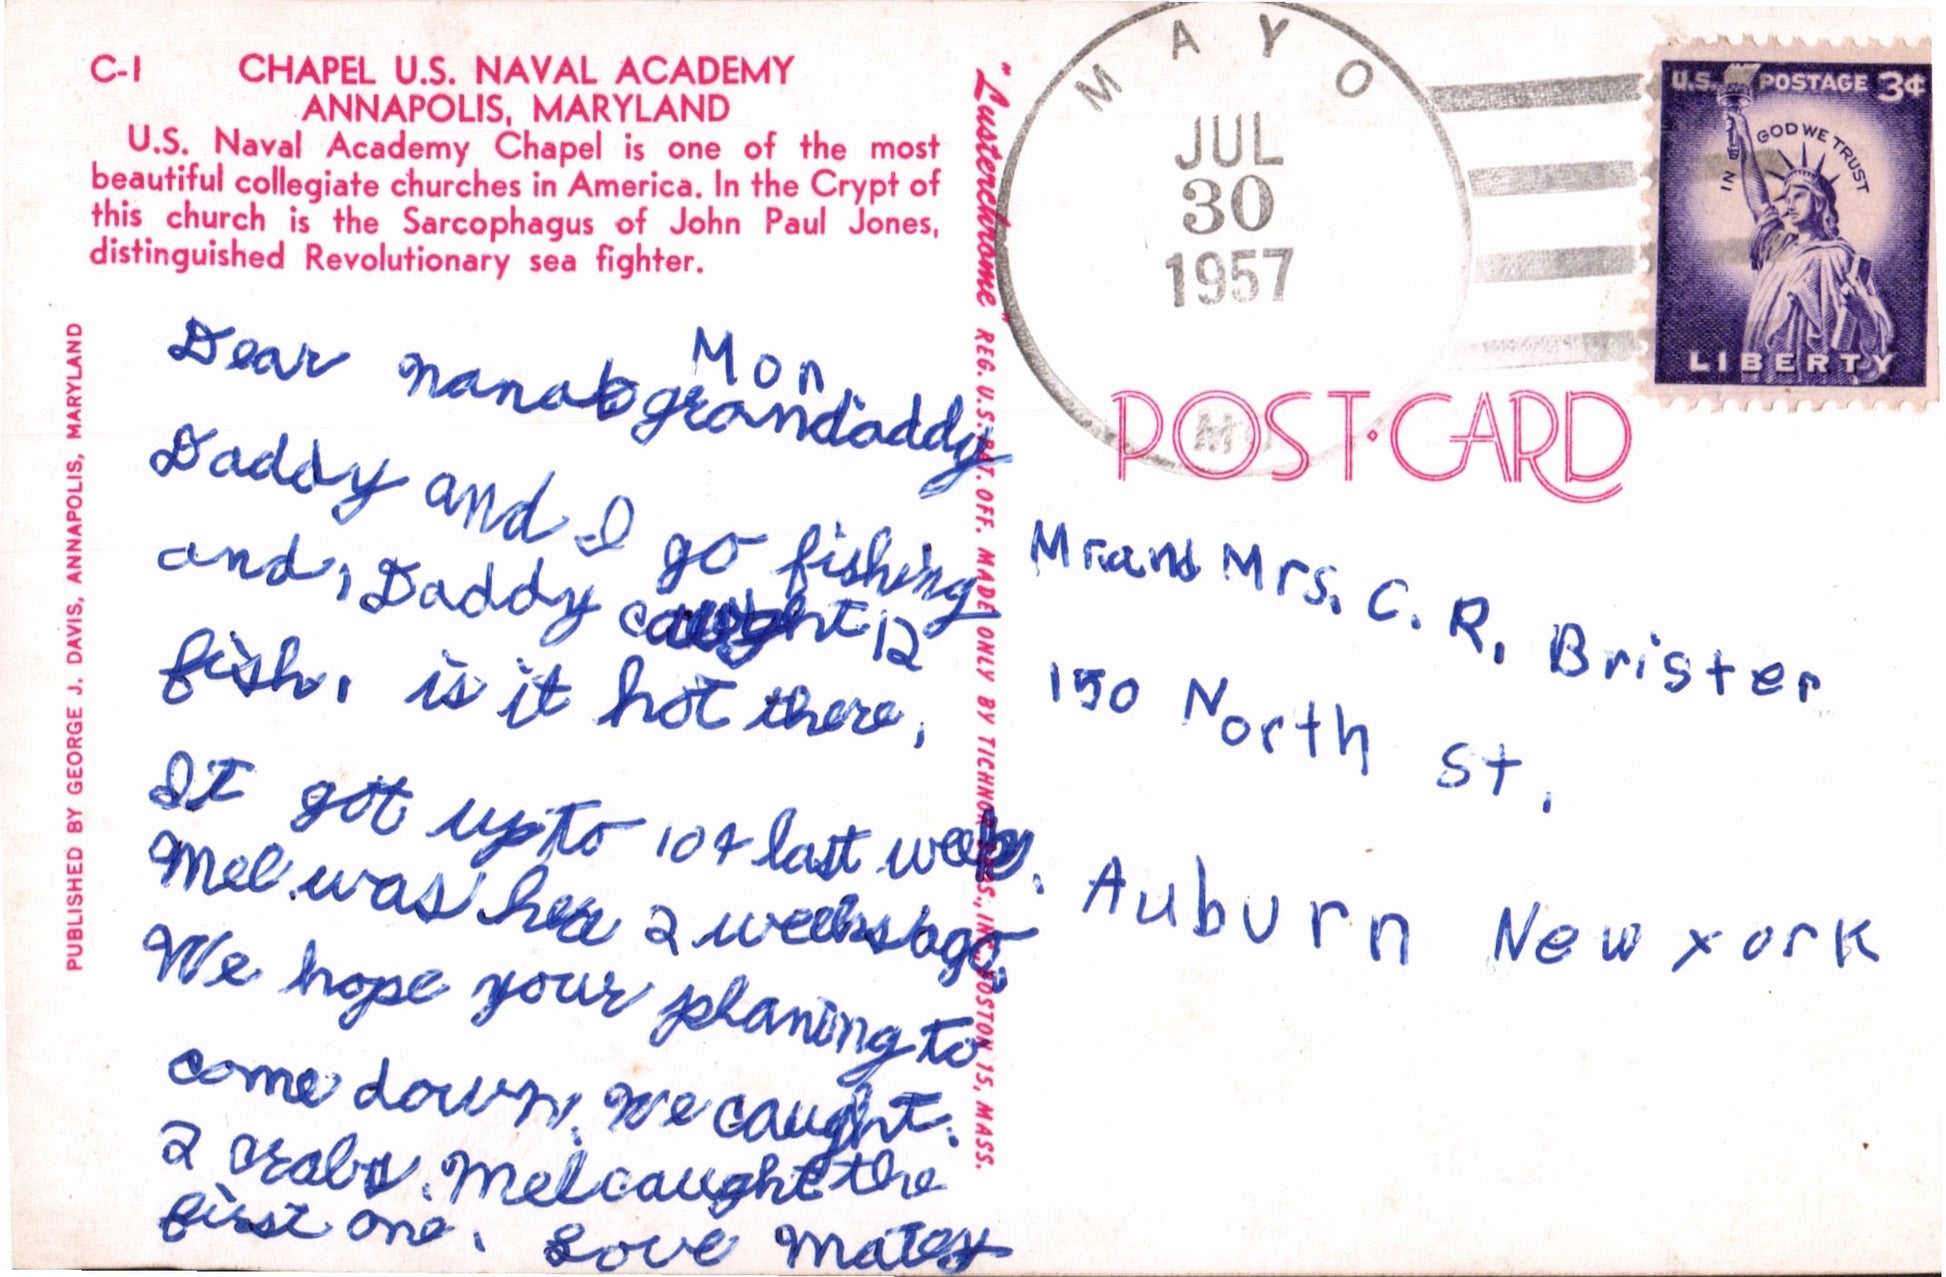 C-1 CHAPEL U.S. NAVAL ACADEMY
ANNAPOLIS, MARYLAND
U.S. Naval Academy Chapel is one of the most
beautiful collegiate churches in America. In the Crypt of
this church is the Sarcophagus of John Paul Jones,
distinguished Revolutionary sea fighter.
PUBLISHED BY GEORGE J. DAVIS, ANNAPOLIS, MARYLAND
Mon.
Dear nana grandaddy
Daddy and I go fishing
and, Daddy caught 12
fish. is it hot there,
It got up to 104 last week.
Mel was here 2 weeks ago.
We hope your planing to
come down. We caught.
2 crabs. Mel caught the
first one. Love Matey
"Lusterchrome" REG. U.S. PAT. OFF. MADE ONLY BY TICHNOR BROS., INC., BOSTON 15, MASS.
MAYO
JUL
30
1957
MD
U.S. POSTAGE 3¢
IN GOD WE TRUST
LIBERTY
POST·CARD
Mr and Mrs. C. R. Brister
150 North St.
Auburn New York